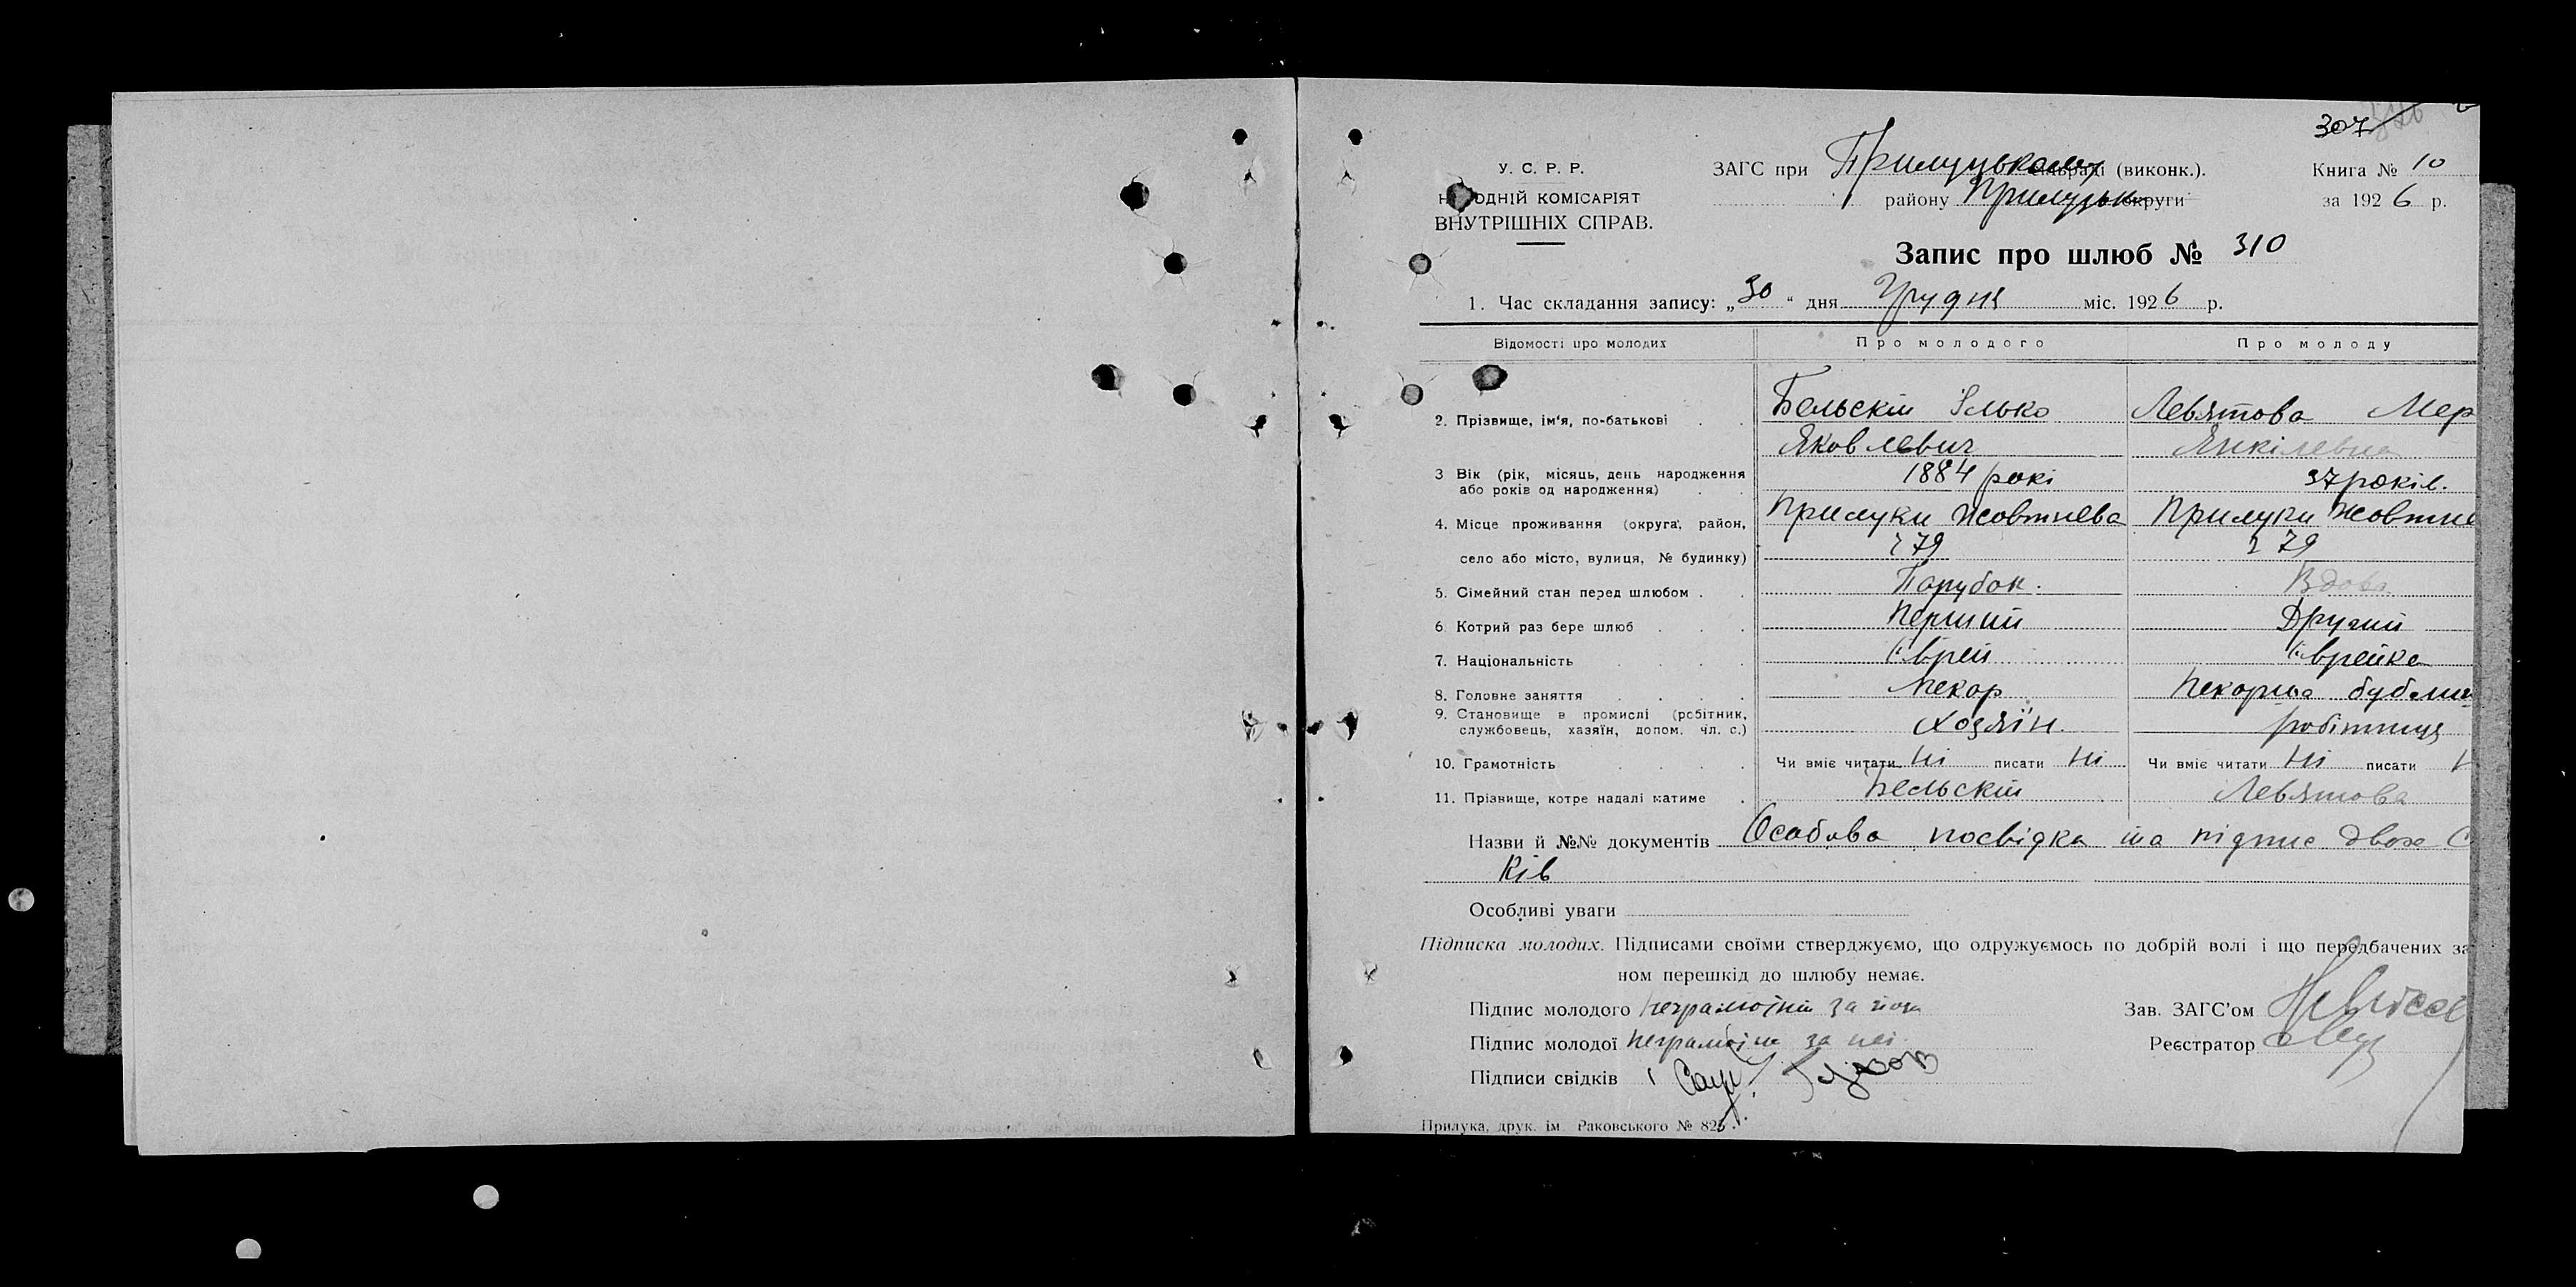 307
У. С. Р. Р.
НАРОДНІЙ КОМІСАРІЯТ
ВНУТРІШНІХ СПРАВ.
ЗАГС при Прилуцькому сільраді (виконк.).
району Прилуцьк округи
Книга № 10
за 1926 р.
Запис про шлюб № 310
1. Час складання запису: „30“ дня Грудня міс. 1926 р.
Відомості про молодих Про молодого Про молоду
2. Прізвище, ім'я, по-батькові Бельскій Ілько Левятова Мер
Яковлевич Янкілевна
3 Вік (рік, місяць, день народження 1884 рокі 37 років.
або років од народження)
4. Місце проживання (округа, район, Прилуки Жовтнева Прилуки Жовтне
село або місто, вулиця, № будинку) 279 279
5. Сімейний стан перед шлюбом Парубок. Вдова
6. Котрий раз бере шлюб Перший Другий
7. Національність Єврей Єврейка
8. Головне заняття Пекар Пекарша бубли
9. Становище в промислі (робітник, Хозяїн. робітниця
службовець, хазяїн, допом. чл. с.)
10. Грамотність Чи вміє читати Ні писати Ні Чи вміє читати Ні писати Н
11. Прізвище, котре надалі матиме Бельскій Левятова
Назви й №№ документів Особова посвідка та підпис двох С
ків
Особливі уваги
Підписка молодих. Підписами своїми стверджуємо, що одружуємось по добрій волі і що передбачених за
ном перешкід до шлюбу немає.
Підпис молодого неграмотний за його
Зав. ЗАГС'ом
Підпис молодої неграмотна за неї
Реєстратор
Підписи свідків
Прилука, друк. ім. Раковського № 826.